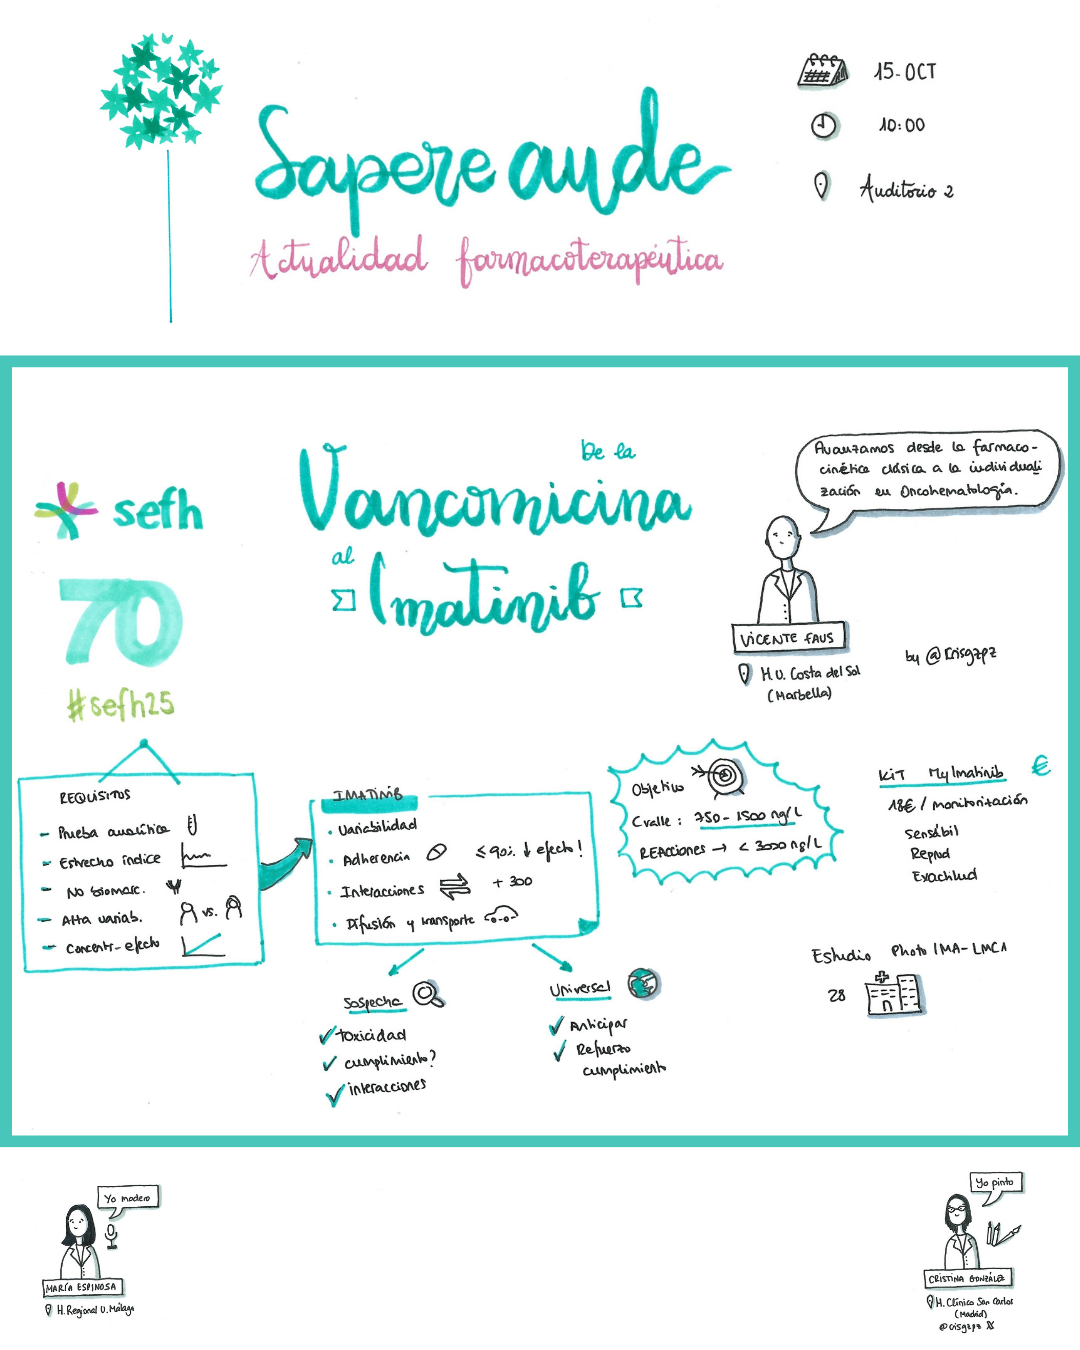 15-OCT
10:00
Auditorio 2
Sapere aude
Actualidad farmacoterapéutica
sefh
70
#sefh25
De la
Vancomicina
al
Imatinib
Avanzamos desde la farmaco-
cinética clásica a la individuali
zación en Oncohematología.
VICENTE FAUS
H.U. Costa del Sol
(Marbella)
by @Crisgzpz
REQUISITOS
- Prueba analítica
- Estrecho índice
- No biomarc.
- Alta variab.
vs.
- Concentr-efecto
IMATINIB
• Variabilidad
• Adherencia
≤90% ↓ efecto!
• Interacciones
+ 300
• Difusión y transporte
Sospecha
✓ Toxicidad
✓ cumplimiento?
✓ interacciones
Universal
✓ Anticipar
✓ Refuerzo
cumplimiento
Objetivo
Cvalle: 750-1500 ng/L
REAcciones → < 3000 ng/L
KIT MyImatinib €
18€ / monitorización
Sensibil
Reprod
Exactitud
Estudio PhotoIMA-LMCA
28
Yo modero
MARÍA ESPINOSA
H. Regional U. Málaga
Yo pinto
CRISTINA GONZÁLEZ
H. Clínico San Carlos
(Madrid)
@crisgzpz X